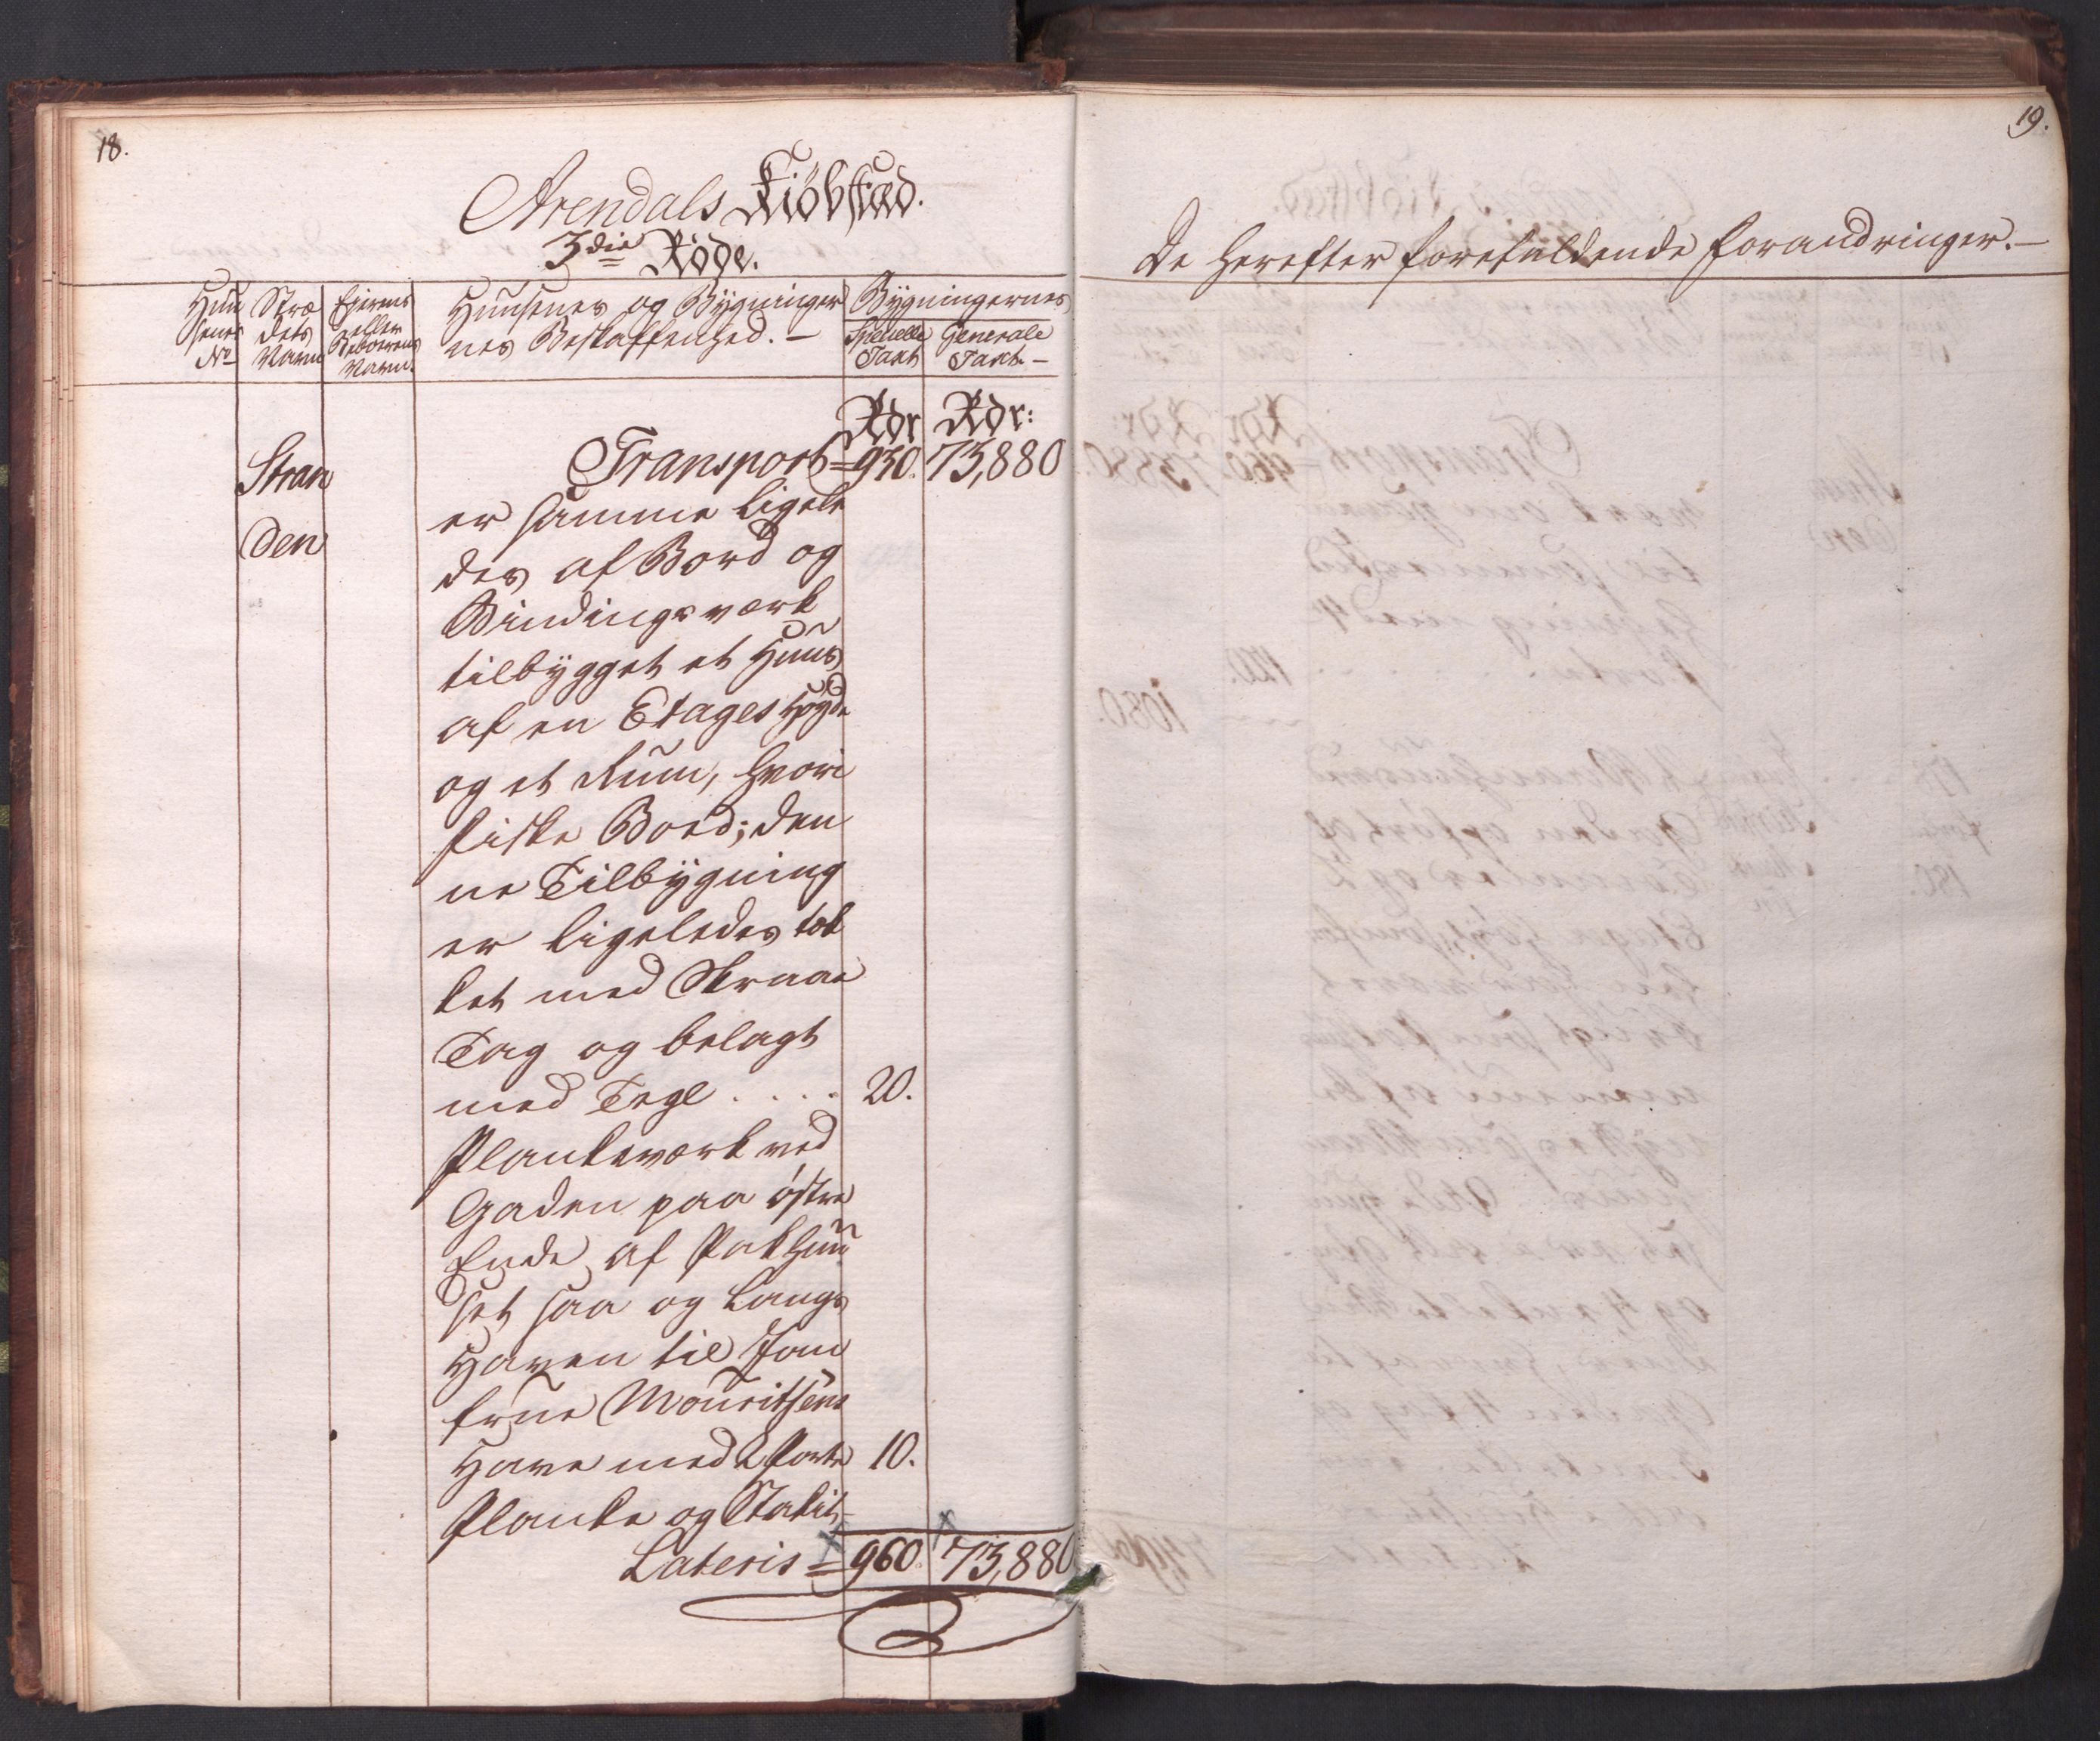 18.
Arendals Kiöbstæd.
3die Röde.
Huu
senes
No
Stræ
dets
Navn
Ejerens
eller
Beboerens
Navn.
Huusenes og Bygninger
nes Beskaffenhed. —
Bygningernes
Specielle
Taxt
Generale
Taxt. —
Rdr Rdr:
Stran
den
Transport = 930. 73,880
er samme ligele
des af Bord og
Bindingsværk
tilbygget et Huus
af en Etages Høyde
og et Rum, hvori
fiske Boed; den
ne Tilbygning
er ligeledes tæk
ket med Skraae
Tag og belagt
med Tegl . . . . 20.
Plankeværk ved
Gaden paa østre
Ende af Pakhuu
set saa og langs
Haven til Jom
frue Mouritsens
Have med 2 Porte 10.
Planke og Stakit
Lateris = 960. 73,880
19.
De herefter forefaldende Forandringer. —